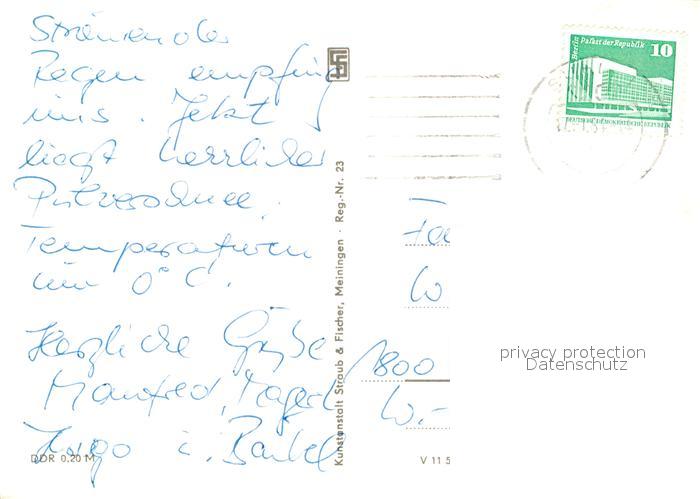 Strömender
Regen empfing
uns. Jetzt
liegt herrlicher
Pulverschnee,
Temperaturen
um 0° C.
Herzliche Grüße
Manfred,
Ingo u. Bärbel
DDR 0,20 M
Kunstanstalt Straub & Fischer, Meiningen · Reg.-Nr. 23
Berlin Palast der Republik 10
DEUTSCHE DEMOKRATISCHE REPUBLIK
Fa
W
1800
W.-
V 11 5
privacy protection
Datenschutz